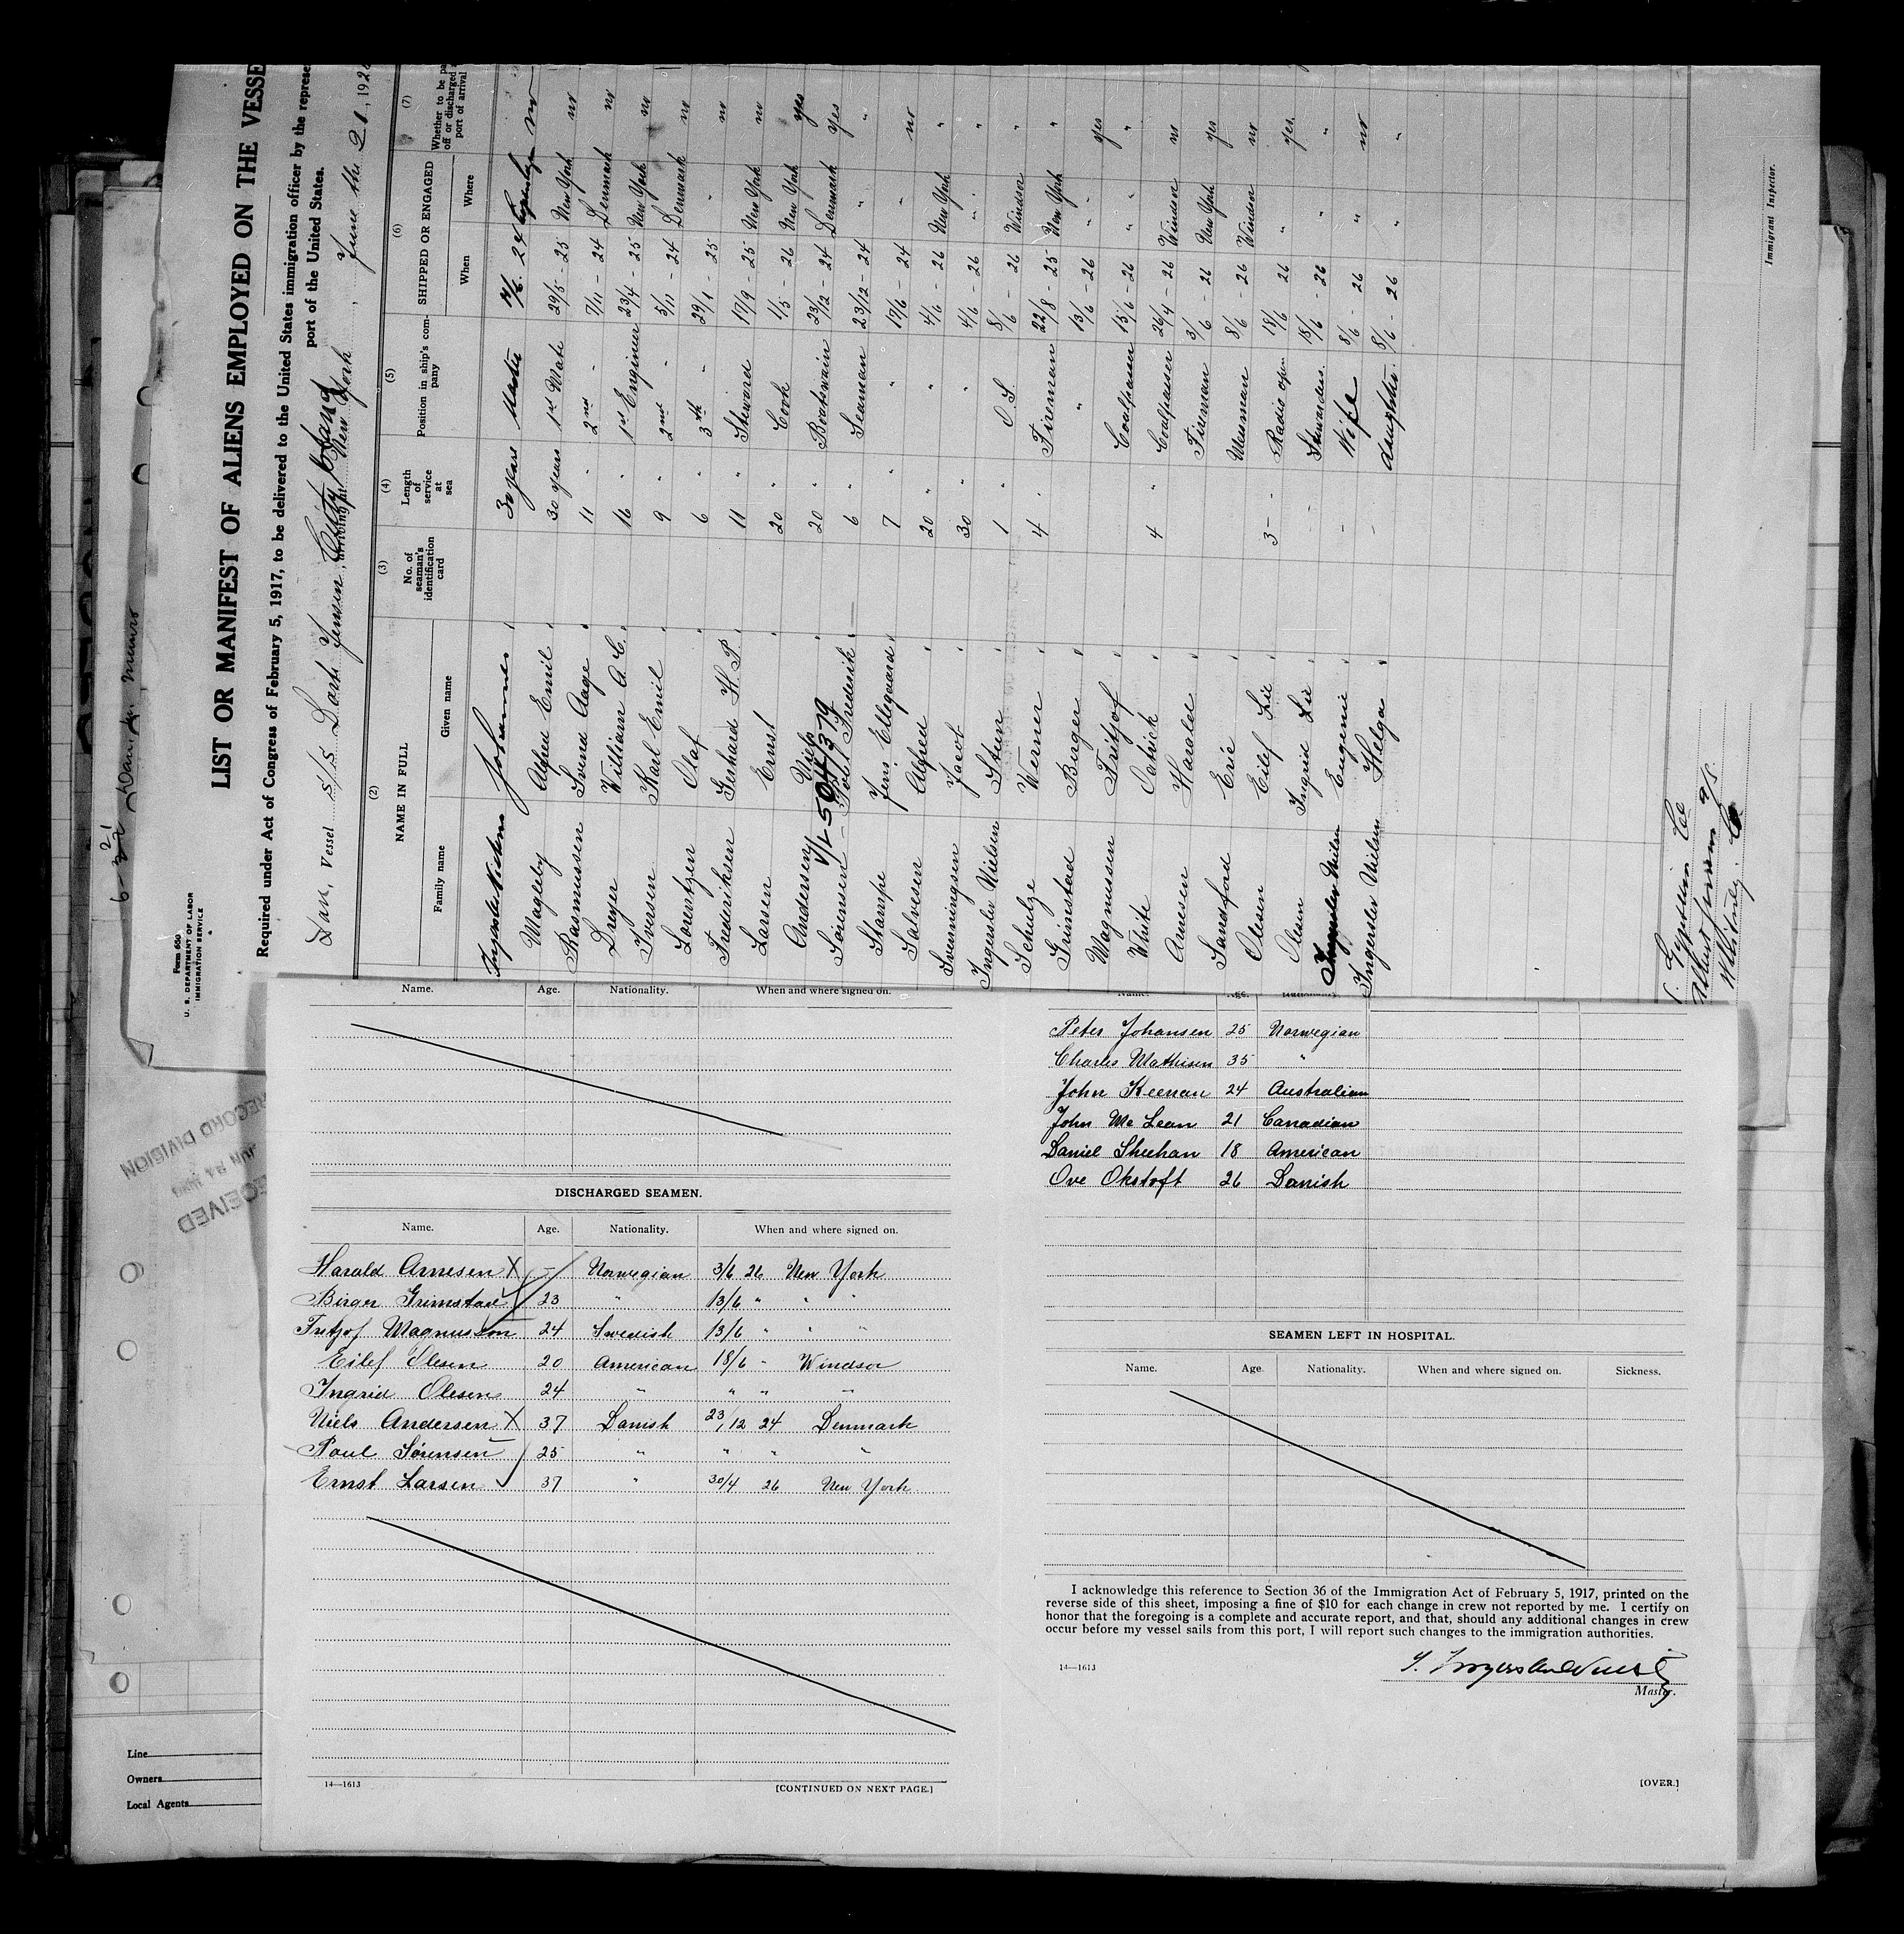 6-21
Form 680
U. S. DEPARTMENT OF LABOR
IMMIGRATION SERVICE
LIST OR MANIFEST OF ALIENS EMPLOYED ON THE VESSE
Required under Act of Congress of February 5, 1917, to be delivered to the United States immigration officer by the represe
port of the United States.
Vessel S/S Lars Jensen, arriving at New York, June the 21, 1926
(2) (3) (4) (5) (6) (7)
NAME IN FULL No. of seaman's identification card Length of service at sea Position in ship's company SHIPPED OR ENGAGED Whether to be pa off or discharged port of arrival
Family name Given name When Where
Johannes 30 years Master 24 no
Magleby Alfred Emil 30 years 1st Mate 29/5 - 25 New York no
Rasmussen Svend Aage 11 " 2nd " 7/11 - 24 Denmark no
Dreyer William A. C. 16 " 1st Engineer 23/4 - 25 New York no
Iversen Karl Emil 9 " 2nd " 5/11 - 24 Denmark no
Lorentzen Olaf 6 " 3th " 29/1 - 25 " no
Frederiksen Gerhard H. P. 11 " Steward 17/9 - 25 New York no
Larsen Ernst 20 " Cook 1/5 - 26 New York yes
Andersen Niels 20 " Boatswain 23/12 - 24 Denmark yes
Sørensen Poul Frederik 6 " Seaman 23/12 - 24 " "
Stampe Jens Ellegaard 7 " " 17/6 - 24 " no
Salvesen Alfred 20 " " 4/6 - 26 New York "
Svenningsen Jacob 30 " " 4/6 - 26 " "
Ingerslev Nielsen Steen 1 " O. S. 8/6 - 26 Windsor "
Schulze Werner 4 " Fireman 22/8 - 25 New York "
Grimstad Birger " " 13/6 - 26 " yes
Magnussen Fritjof " Coalpasser 13/6 - 26 " "
White Patrick 4 " Coalpasser 26/4 - 26 Windsor no
Arnesen Harald " Fireman 3/6 - 26 New York yes
Sandford Eric " Messman 8/6 - 26 Windsor no
Olesen Eilef Lie " 3 - Radio oper. 18/6 26 " yes
Olsen Ingrid Lie " - Stewardess 18/6 - 26 " "
Ingerslev Nilsen Eugenie " - Wife 8/6 - 26 " no
Ingerslev Nilsen Helga " - daughter 8/6 - 26 " "
Immigrant Inspector.
RECEIVED
RECORD DIVISION
Line
Owners
Local Agents
Name. Age. Nationality. When and where signed on.
DISCHARGED SEAMEN.
Name. Age. Nationality. When and where signed on.
Harald Arnesen X - Norwegian 3/6 26 New York
Birger Grimstad 23 " 13/6 " " "
Fritjof Magnusson 24 Swedish 13/6 " " "
Eilef Olesen 20 American 18/6 " Windsor
Ingrid Olesen 24 " " " "
Niels Andersen X 37 Danish 23/12 24 Denmark
Poul Sørensen 25 " " " "
Ernst Larsen 37 " 30/4 26 New York
14—1613
[CONTINUED ON NEXT PAGE.]
Peter Johansen 25 Norwegian
Charles Mathisen 35 "
John Keenan 24 Australian
John Mc Lean 21 Canadian
Daniel Sheehan 18 American
Ove Okstoft 26 Danish
SEAMEN LEFT IN HOSPITAL.
Name. Age. Nationality. When and where signed on. Sickness.
I acknowledge this reference to Section 36 of the Immigration Act of February 5, 1917, printed on the
reverse side of this sheet, imposing a fine of $10 for each change in crew not reported by me. I certify on
honor that the foregoing is a complete and accurate report, and that, should any additional changes in crew
occur before my vessel sails from this port, I will report such changes to the immigration authorities.
14—1613
Master.
[OVER.]